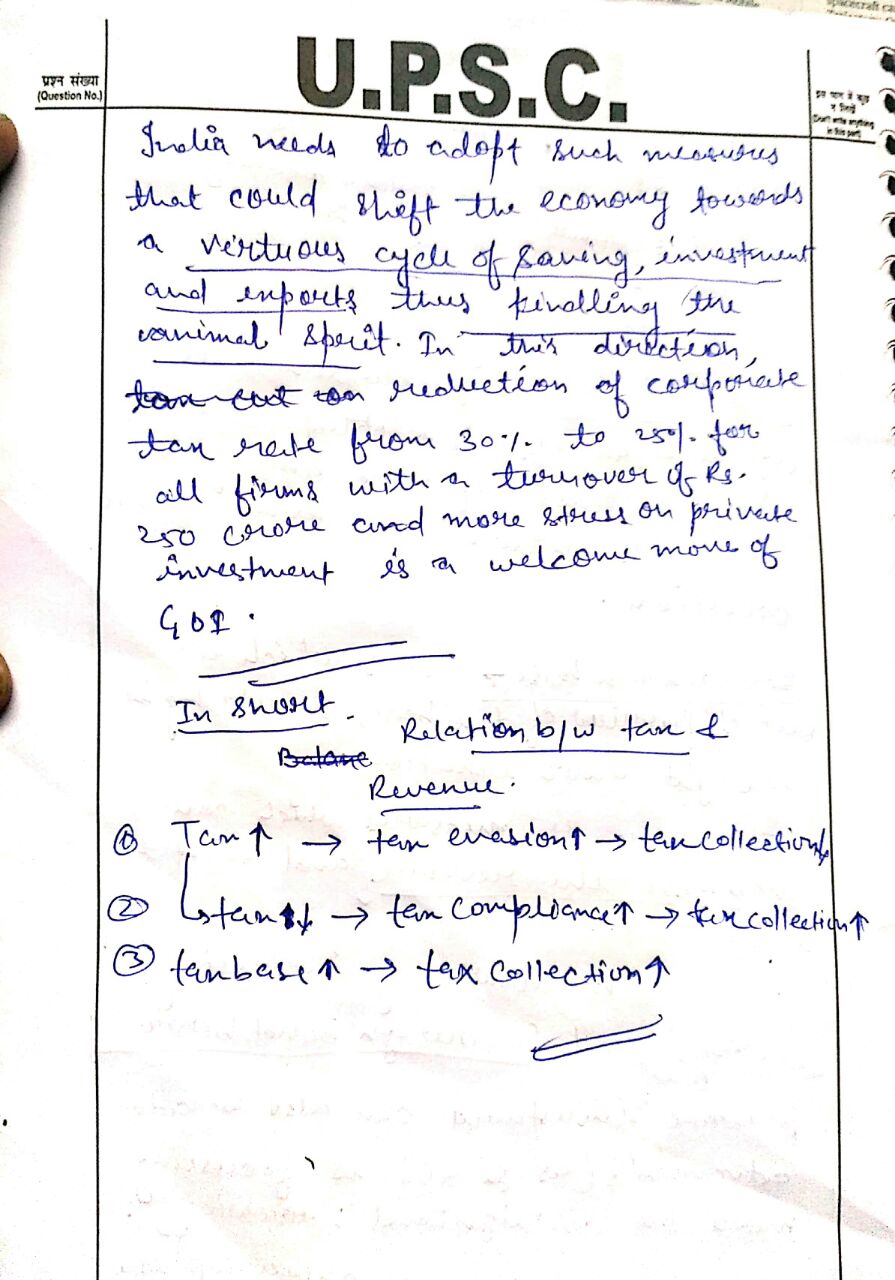 U.P.S.C.
प्रश्न संख्या
(Question No.)
(Don't write anything
in this part)
India needs to adopt such measures
that could shift the economy towards
a virtuous cycle of saving, investment
and exports thus kindling the
animal spirit. In this direction,
tax cut on reduction of corporate
tax rate from 30% to 25% for
all firms with a turnover of Rs.
250 crore and more stress on private
investment is a welcome move of
GOI.
In short.
Relation b/w tax &
Balane
Revenue.
① Tax ↑ → tax evasion ↑ → tax collection ↓
② ↳ tax ↓ → tax compliance ↑ → tax collection ↑
③ tax base ↑ → tax collection ↑